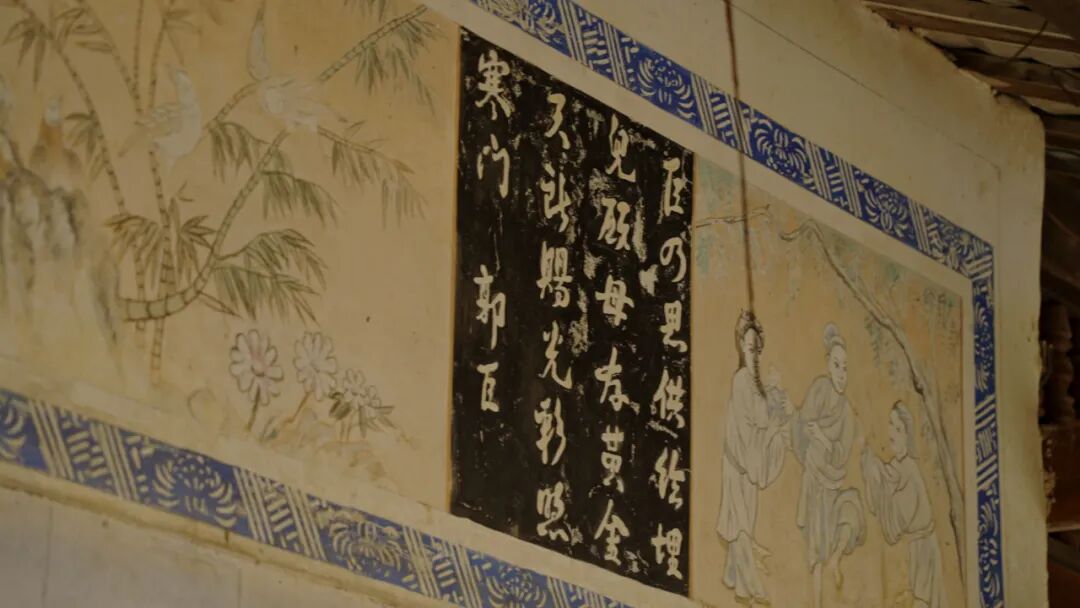 巨乃思供给埋
兒願母存黄金
天所賜光彩照
寒门 郭巨